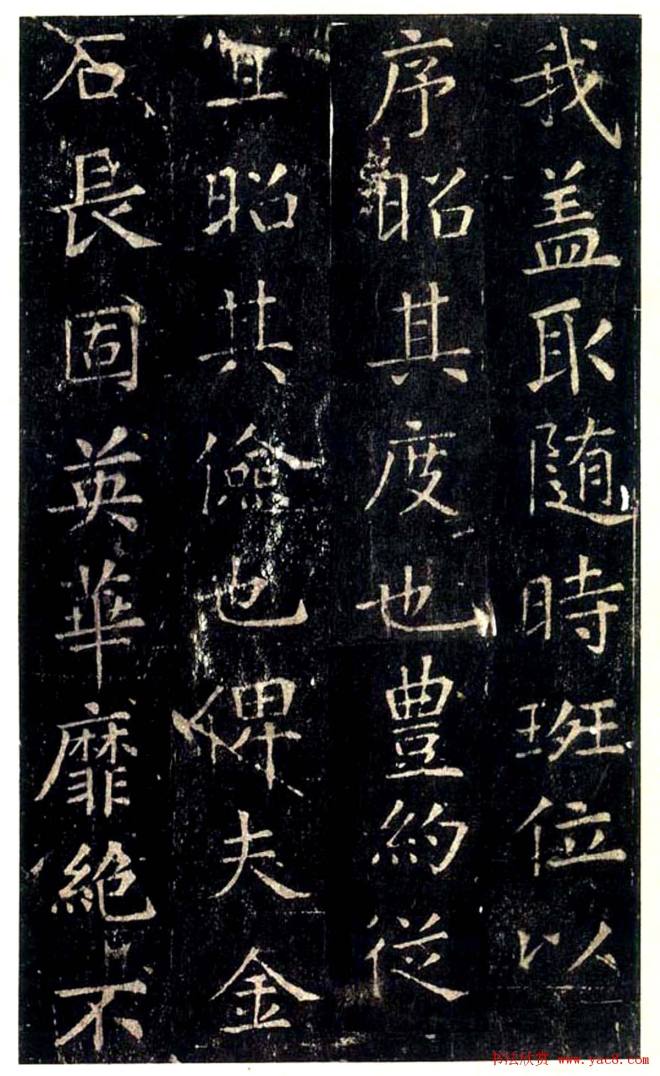 我盖取随時班位以
序昭其度也豊約従
宜昭其儉也俾夫金
石長固英華靡絶不
书法欣赏 www.yac8.com